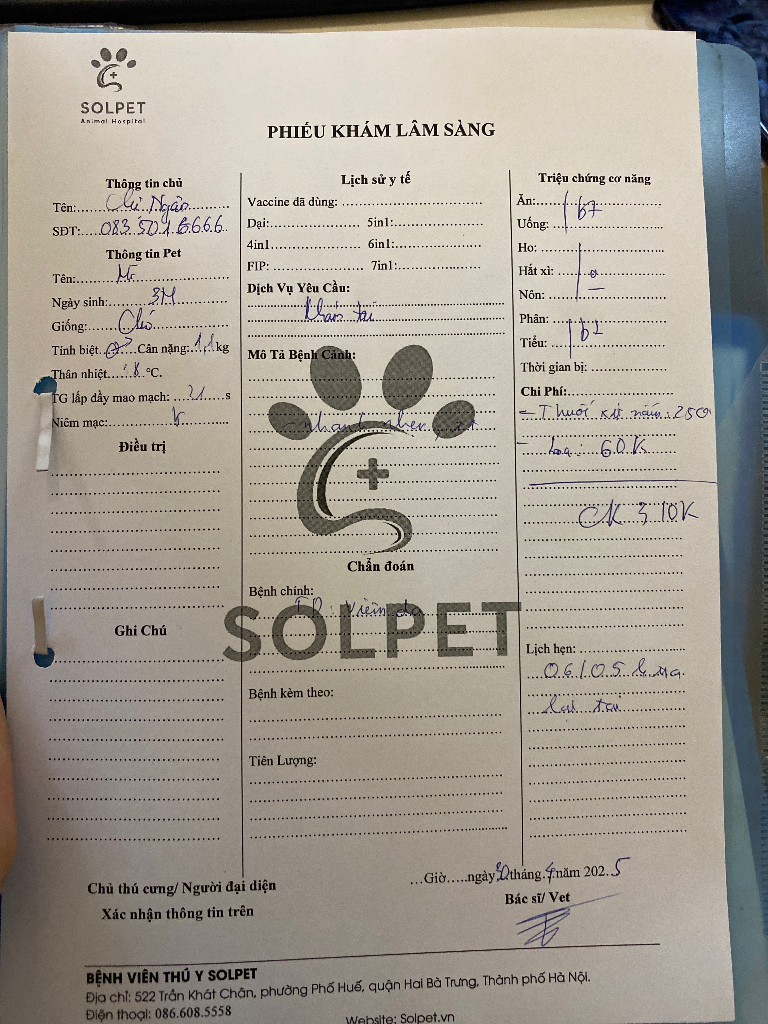 SOLPET
Animal Hospital
PHIẾU KHÁM LÂM SÀNG
Thông tin chủ
Tên:
SĐT: 083.501.6666
Thông tin Pet
Tên:
Ngày sinh: 3M
Giống: Chó
Tính biệt Cân nặng: 1,1 kg
Thân nhiệt °C.
TG lấp đầy mao mạch: 21 s
Niêm mạc:
Điều trị
Ghi Chú
Lịch sử y tế
Vaccine đã dùng:
Dại: 5in1:
4in1 6in1:
FIP: 7in1:
Dịch Vụ Yêu Cầu:
Khám tai
Mô Tả Bệnh Cảnh:
Chẩn đoán
Bệnh chính:
viêm da
SOLPET
Bệnh kèm theo:
Tiên Lượng:
Triệu chứng cơ năng
Ăn: bt
Uống:
Ho:
Hắt xì:
Nôn: –
Phân: bt
Tiểu:
Thời gian bị:
Chi Phí:
– Thuốc xịt nấm: 250
– Loa: 60K
CK 310K
Lịch hẹn:
06/05
lại tai
Chủ thú cưng/ Người đại diện
Xác nhận thông tin trên
...Giờ.....ngày 30 tháng 4 năm 2025
Bác sĩ/ Vet
BỆNH VIÊN THÚ Y SOLPET
Địa chỉ: 522 Trần Khát Chân, phường Phố Huế, quận Hai Bà Trưng, Thành phố Hà Nội.
Điện thoại: 086.608.5558
Website: Solpet.vn